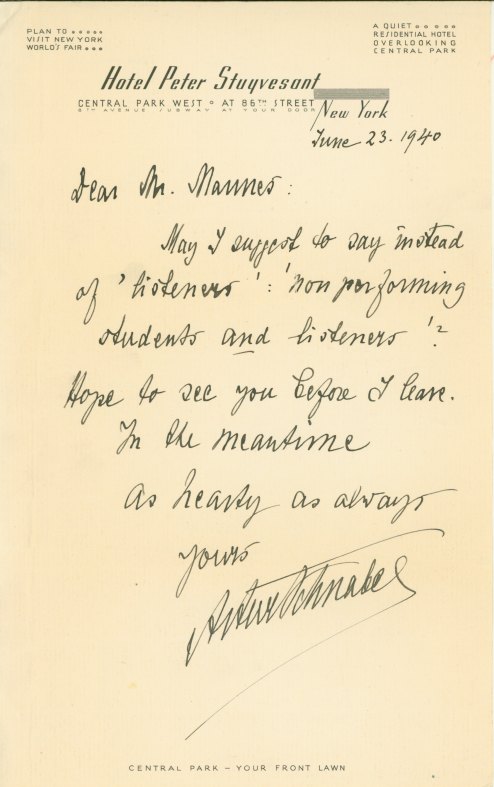 PLAN TO
VISIT NEW YORK
WORLD'S FAIR
A QUIET
RESIDENTIAL HOTEL
OVERLOOKING
CENTRAL PARK
Hotel Peter Stuyvesant
CENTRAL PARK WEST • AT 86TH STREET
8TH AVENUE SUBWAY AT YOUR DOOR
New York
June 23. 1940
Dear Mr. Mannes:
May I suggest to say instead
of 'listeners': 'non performing
students and listeners'?
Hope to see you before I leave.
In the meantime
as hearty as always
yours
Artur Schnabel
CENTRAL PARK – YOUR FRONT LAWN